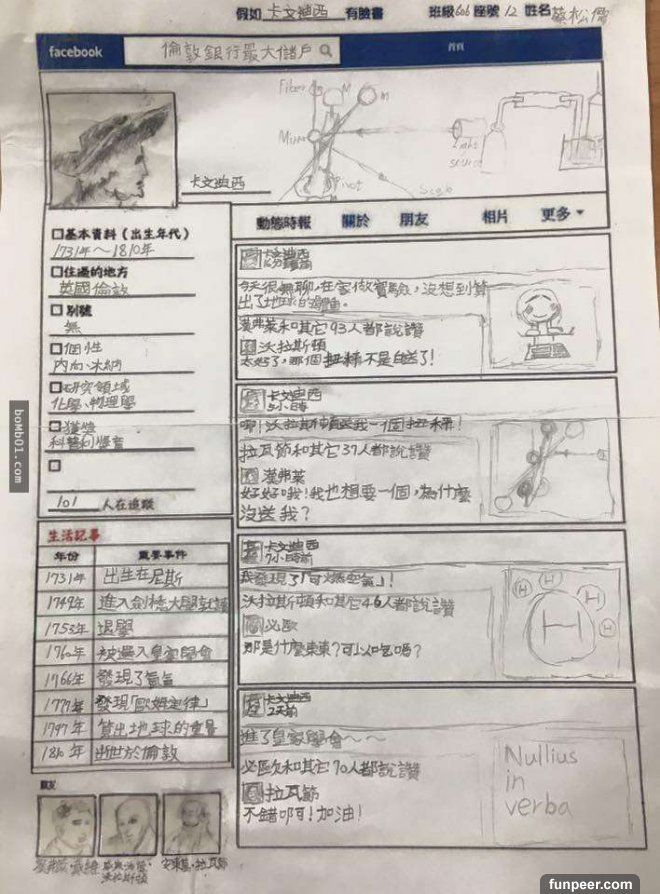 假如 卡文迪西 有臉書 班級606 座號12 姓名蔡松儒
facebook 倫敦銀行最大儲戶 首頁
Fiber M m
Mirror Light source
Pivot Scale
卡文迪西
動態時報 關於 朋友 相片 更多
基本資料(出生年代)
1731年~1810年
住過的地方
英國倫敦
別號
無
個性
內向、冰納
研究領域
化學、物理學
獲獎
科普利獎章
101 人在追蹤
生活記事
年份 重要事件
1731年 出生在尼斯
1749年 進入劍橋大學就讀
1753年 退學
1760年 被選入皇家學會
1766年 發現了氫氣
1777年 發現「歐姆定律」
1797年 算出地球的重量
1810年 逝世於倫敦
朋友
安東萬·拉瓦節
卡文迪西
今天很無聊,在家做實驗,沒想到算
出了地球的重量。
漢弗萊和其它93人都說讚
沃拉斯頓
太好了,那個扭秤不是白送了!
卡文迪西
5小時前
唧!沃拉斯頓送我一個扭秤!
拉瓦節和其它37人都說讚
漢弗萊
好好哦!我也想要一個,為什麼
沒送我?
卡文迪西
7小時前
我發現了「可燃空氣」!
沃拉斯頓和其它46人都說讚
必歐
那是什麼東東?可以吃嗎?
H H H H H
卡文迪西
2天前
進了皇家學會~~
必歐和其它70人都說讚
拉瓦節
不錯啊!加油!
Nullius
in
verba
bomb01.com
funpeer.com